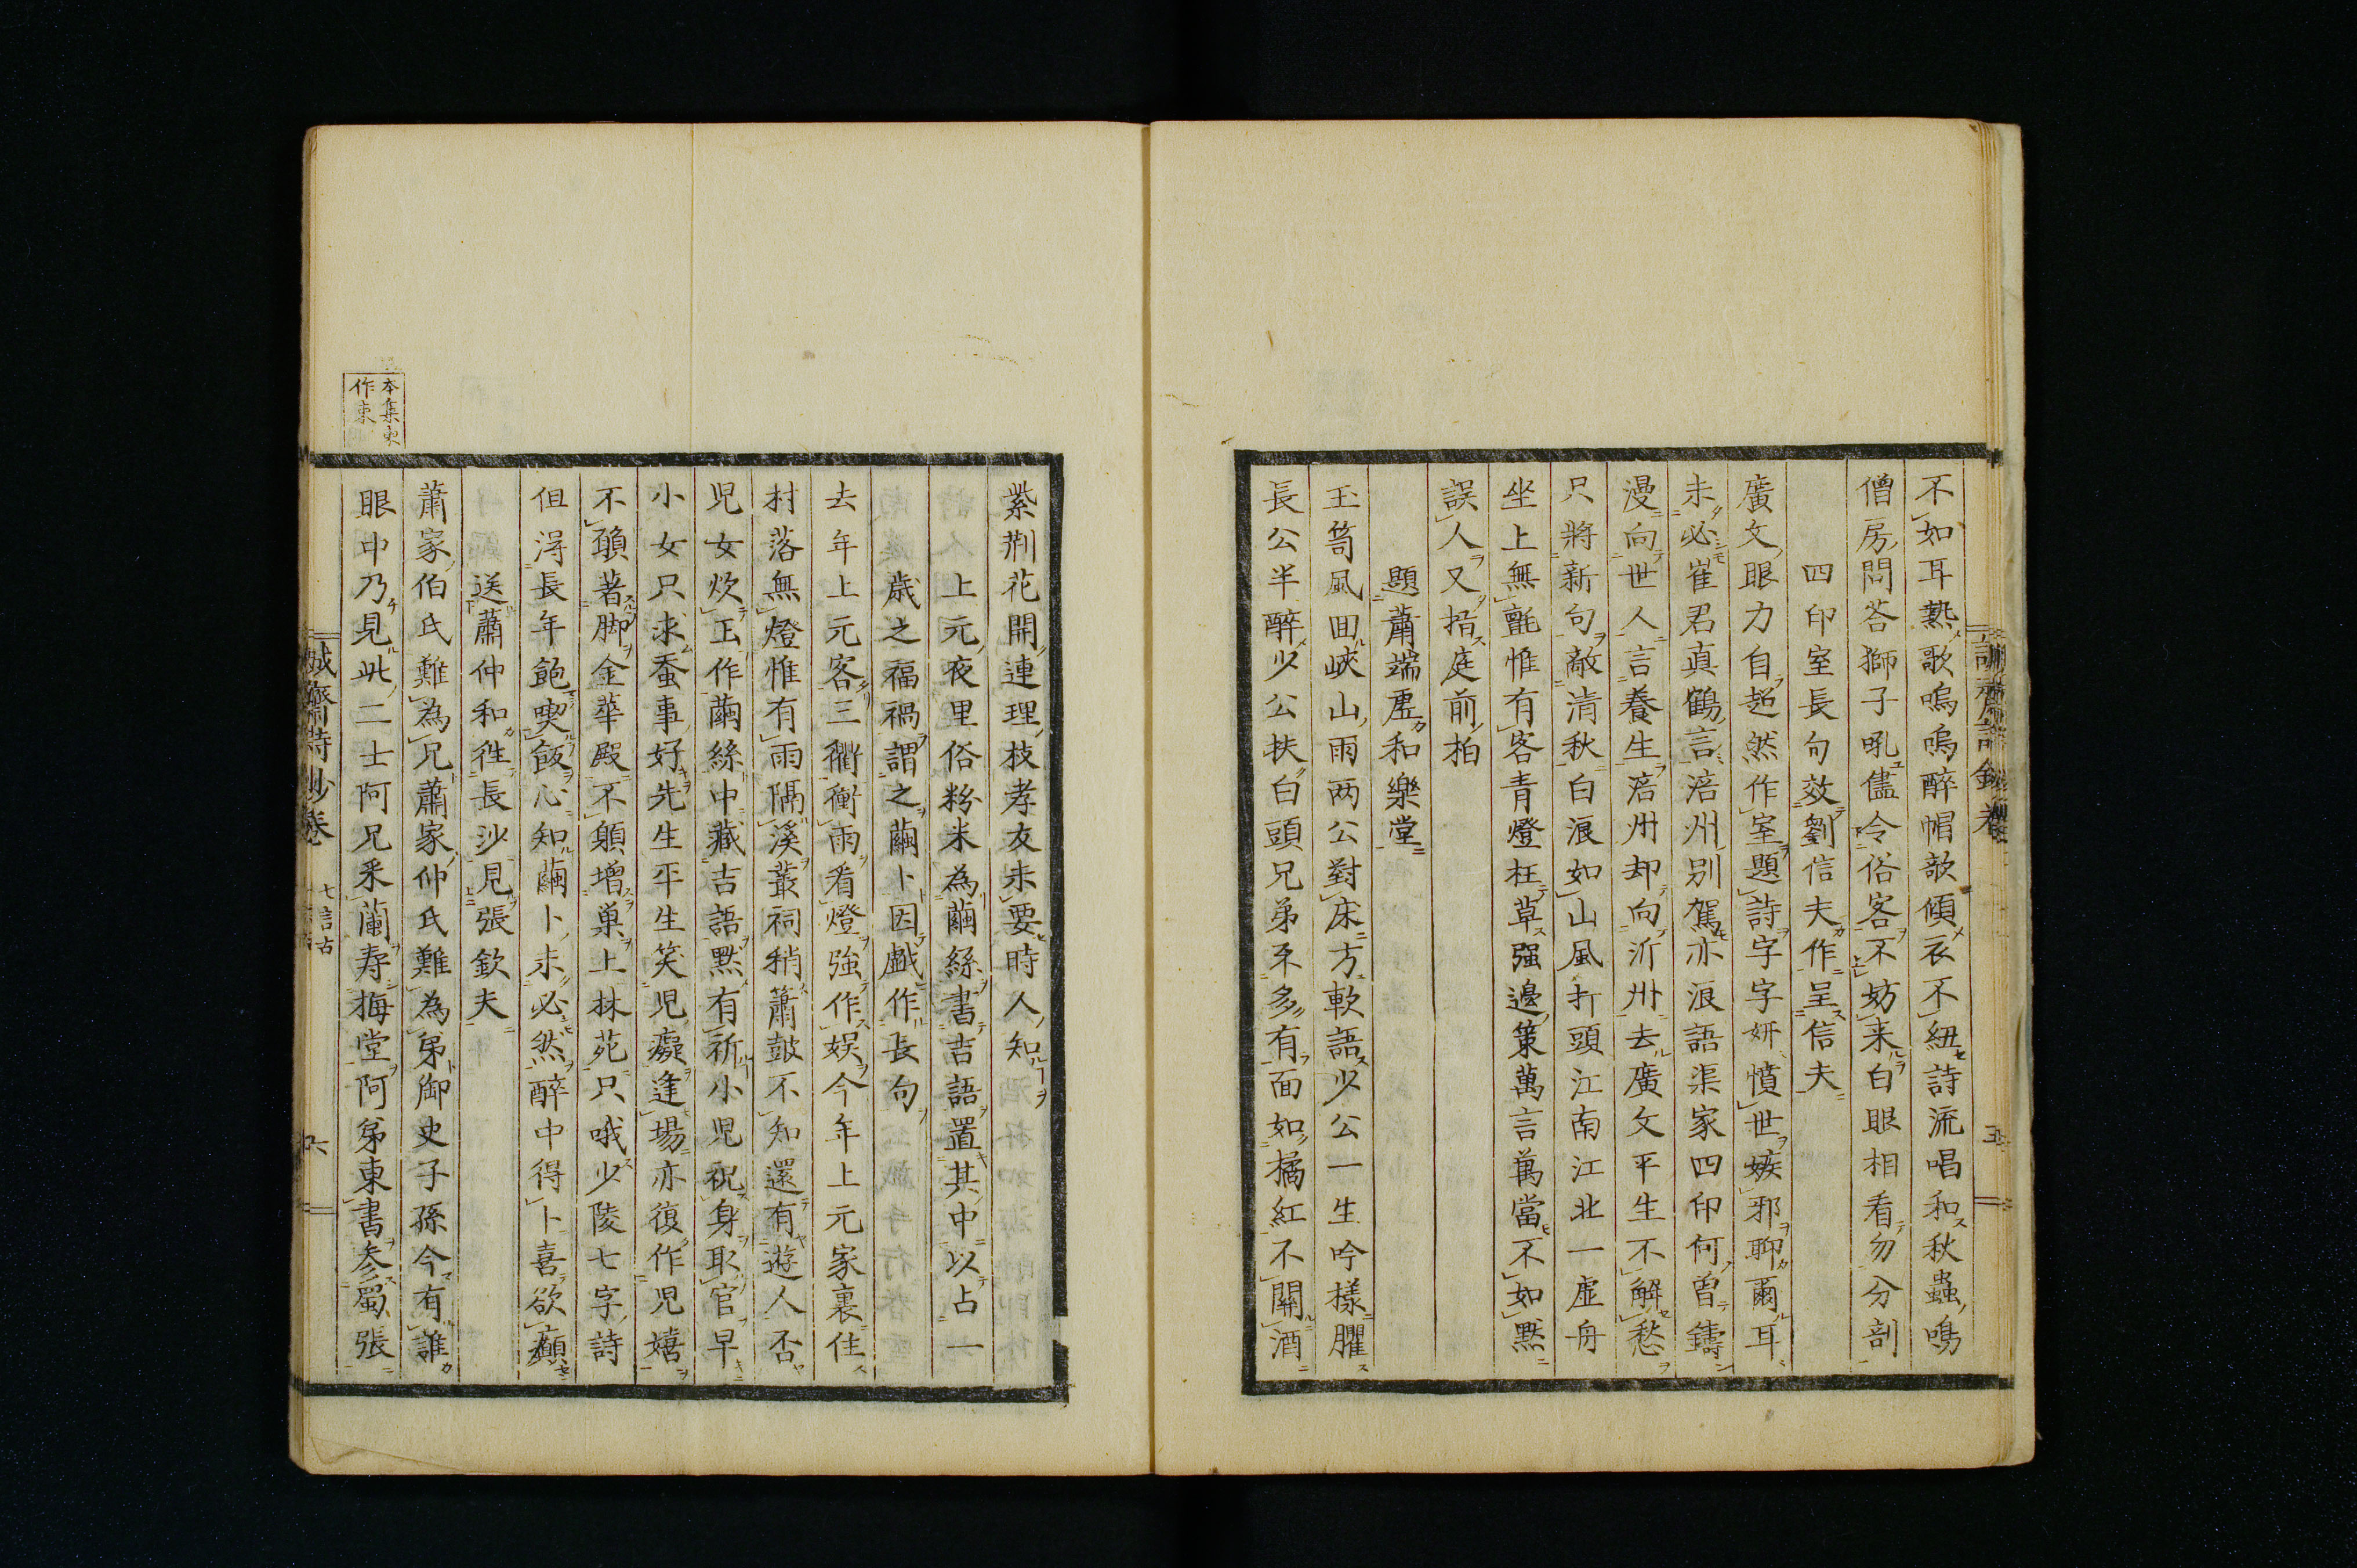 不如耳熱歌嗚嗚醉帽欹傾衣不紐詩流唱和秋蟲鳴
僧房問荅獅子吼儘令俗客不妨来白眼相看勿分剖
四印室長句效劉信夫作呈信夫
廣文眼力自超然作室題詩字字妍憤世嫉邪聊爾耳
未必崔君真鶴言涪州別駕亦浪語渠家四印何曽鑄
漫向世人言養生涪州却向沂州去廣文平生不解愁
只將新句敵清秋白浪如山風打頭江南江北一虚舟
坐上無氈惟有客青燈枉草强邊策萬言萬當不如黙
誤人又指庭前柏
題蕭端虚和樂堂
玉笥風回峽山雨两公對床方軟語少公一生吟様臞
長公半醉少公扶白頭兄弟不多有面如橘紅不關酒
紫荆花開連理枝孝友未要時人知
上元夜里俗粉米為繭絲書吉語置其中以占一
歳之福禍謂之繭卜因戯作長句
去年上元客三衢衝雨看燈強作娯今年上元家裏住
村落無燈惟有雨隔溪叢祠稍簫鼓不知還有遊人否
児女炊玉作繭絲中藏吉語黙有祈小児祝身取官早
小女只求蚕事好先生平生笑児癡逢場亦復作児嬉
不願著脚金華殿不願增巣上林苑只哦少陵七字詩
但得長年飽喫飯心知繭卜未必然醉中得卜喜欲癲
送蕭仲和徃長沙見張欽夫
蕭家伯氏難為兄蕭家仲氏難為弟御史子孫今有誰
眼中乃見此二士阿兄釆蘭寿梅堂阿弟東書参蜀張
本集
作束
誠齋詩鈔卷
七言古
六
五